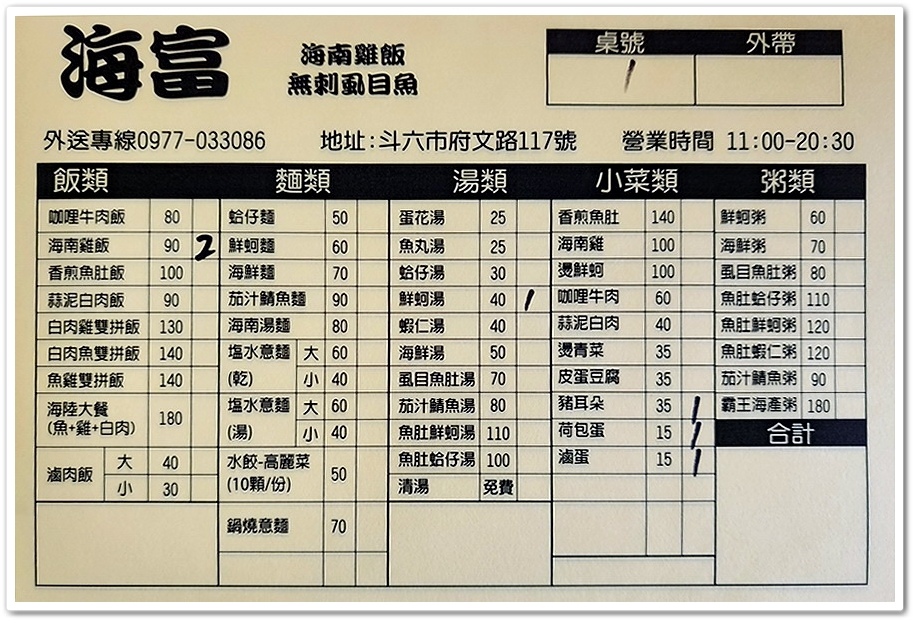 海富
海南雞飯
無刺虱目魚
桌號 外帶
1
外送專線0977-033086 地址:斗六市府文路117號 營業時間 11:00-20:30
飯類 麵類 湯類 小菜類 粥類
咖哩牛肉飯 80 蛤仔麵 50 蛋花湯 25 香煎魚肚 140 鮮蚵粥 60
海南雞飯 90 2 鮮蚵麵 60 魚丸湯 25 海南雞 100 海鮮粥 70
香煎魚肚飯 100 海鮮麵 70 蛤仔湯 30 燙鮮蚵 100 虱目魚肚粥 80
蒜泥白肉飯 90 茄汁鯖魚麵 90 鮮蚵湯 40 1 咖哩牛肉 60 魚肚蛤仔粥 110
白肉雞雙拼飯 130 海南湯麵 80 蝦仁湯 40 蒜泥白肉 40 魚肚鮮蚵粥 120
白肉魚雙拼飯 140 塩水意麵 大 60 海鮮湯 50 燙青菜 35 魚肚蝦仁粥 120
魚雞雙拼飯 140 (乾) 小 40 虱目魚肚湯 70 皮蛋豆腐 35 茄汁鯖魚粥 90
海陸大餐 180 塩水意麵 大 60 茄汁鯖魚湯 80 豬耳朵 35 1 霸王海產粥 180
(魚+雞+白肉) (湯) 小 40 魚肚鮮蚵湯 110 荷包蛋 15 1 合計
滷肉飯 大 40 水餃-高麗菜 50 魚肚蛤仔湯 100 滷蛋 15 1
小 30 (10顆/份) 清湯 免費
鍋燒意麵 70